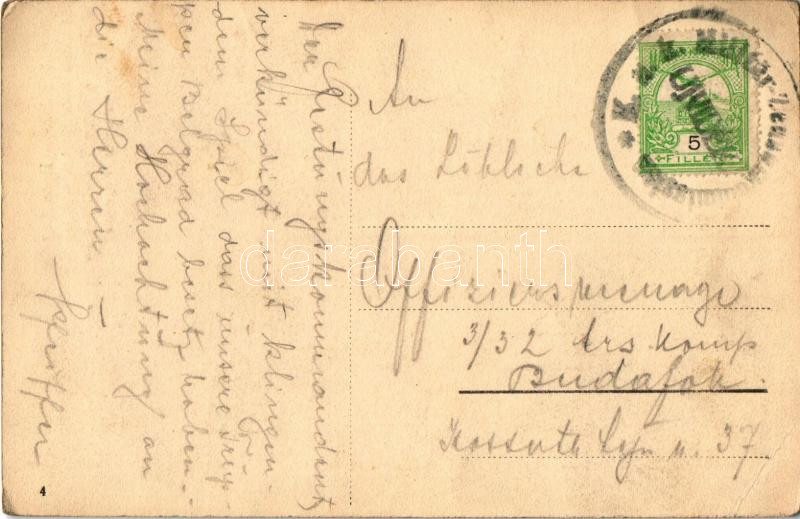 Der Festungskommandant
verkündigt mit klingen-
dem Spiel dass unsere Trup-
pen Belgrad besetzt haben.-
Meine Hochachtung an
die Herren.-
Pfeiffer
4
An
das Löbliche
Offiziersmenage
3/32 Ers Komp
Budafok.
Kossuth Lajos u. 37
K. u. K. Militär
5
FILLÉR
darabanth